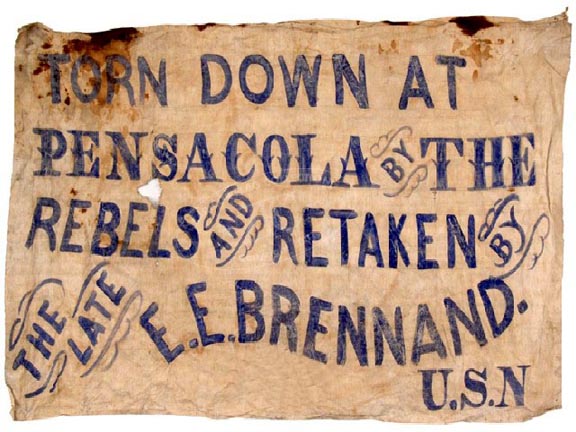 TORN DOWN AT
PENSACOLA BY THE
REBELS AND RETAKEN BY
THE LATE E.E. BRENNAND.
U.S.N